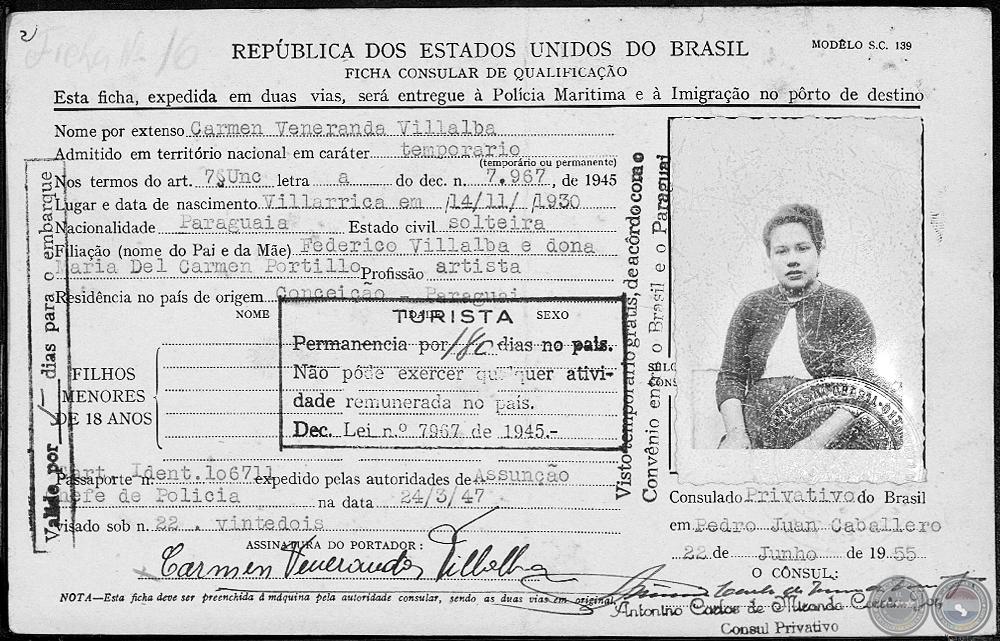 2)
Ficha No 16
REPÚBLICA DOS ESTADOS UNIDOS DO BRASIL
MODÊLO S.C. 139
FICHA CONSULAR DE QUALIFICAÇÃO
Esta ficha, expedida em duas vias, será entregue à Polícia Maritima e à Imigração no pôrto de destino
Nome por extenso Carmen Veneranda Villalba
Admitido em território nacional em caráter temporario
(temporário ou permanente)
Nos termos do art. 7§Unc letra a do dec. n. 7.967, de 1945
Lugar e data de nascimento Villarrica em 14/11/ 1930
Nacionalidade Paraguaia Estado civil solteira
Filiação (nome do Pai e da Mãe) Federico Villalba e dona
Maria Del Carmen Portillo Profissão artista
Residência no país de origem Conceição - Paraguai
NOME IDADE SEXO
FILHOS
MENORES
DE 18 ANOS
TURISTA
Permanencia por 180 dias no pais.
Não póde exercer qualquer ativi-
dade remunerada no pais.
Dec. Lei n.º 7967 de 1945.-
Cart. Ident. 106711
Passaporte n. expedido pelas autoridades de Assunção
Chefe de Policia na data 24/3/47
visado sob n. 22 . vintedois
ASSINATURA DO PORTADOR:
Carmen Veneranda Villalba
NOTA—Esta ficha deve ser preenchida à máquina pela autoridade consular, sendo as duas vias em original.
Valido por dias para o embarque
Visto temporario gratis, de acôrdo com o
Convênio entre o Brasil e o Paraguai
SÊLO
CONS
Consulado Privativo do Brasil
em Pedro Juan Caballero
22 de Junho de 1955
O CÔNSUL:
Antonino Carlos de Miranda
Consul Privativo